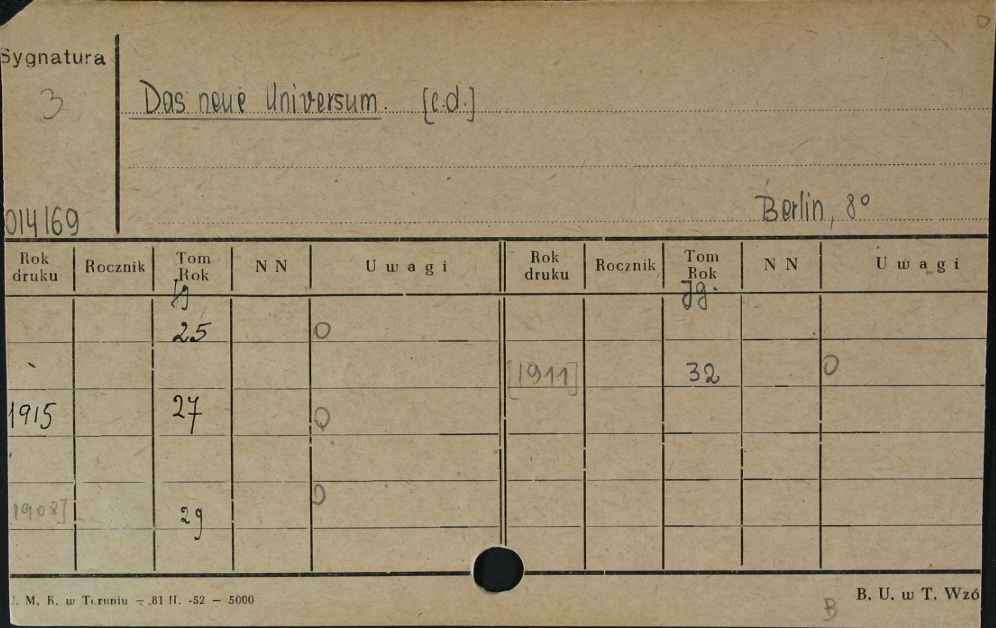 Sygnatura
3
Das neue Universum. [c.d.]
Berlin, 8º
014169
Rok druku Rocznik Tom Rok NN Uwagi Rok druku Rocznik Tom Rok NN Uwagi
Jg Jg.
25 0
[1911] 32 0
1915 27 0
0
1908] 29
. M. K. w Toruniu – .81 II. -52 – 5000
B. U. w T. Wzó
B